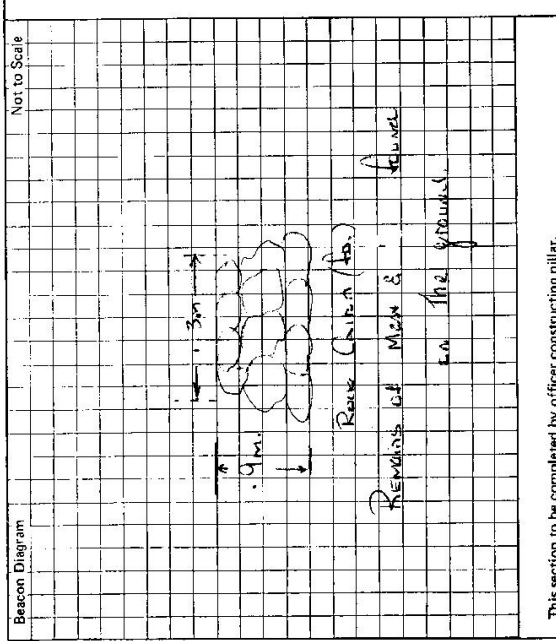 Beacon Diagram
Not to Scale
3m
.9m.
Rock Cairn (fd.)
Remains of Mast & found
on The ground.
This section to be completed by officer constructing pillar.